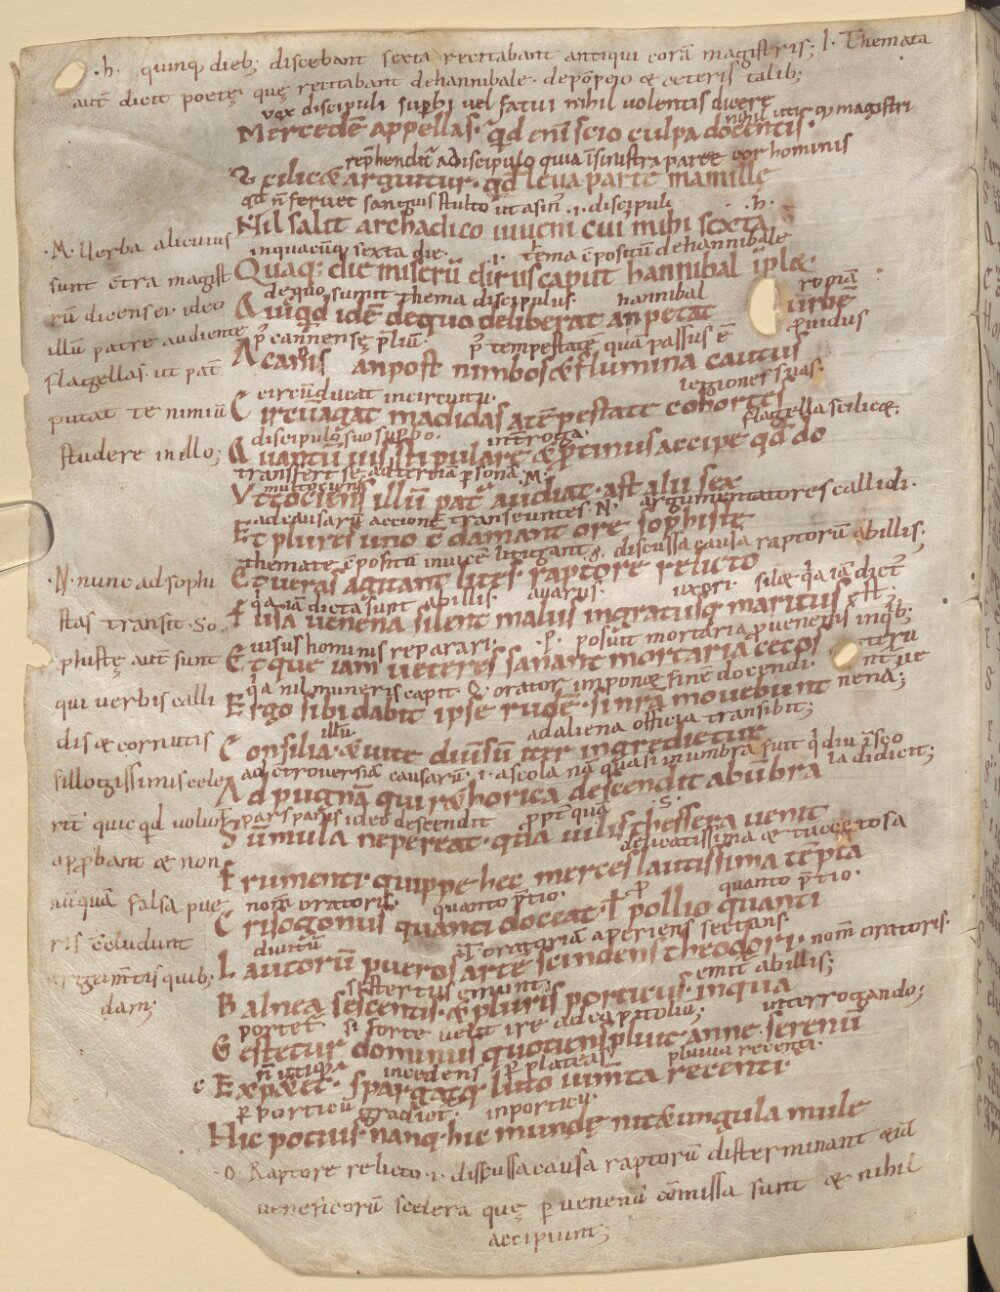 .h. quinq; dieb; discebant sexta recitabant antiqui corā magistris; l. Themata
autē dicit poetę quę recitabant dehannibale. depōpeio & ceteris talib;
vox discipuli supbi vel fatui nihil volentis dicere
nihil uitiū magistri
Mercedē appellas. qd eni scio culpa docentis.
rephenditur adiscipulo quia īsinistra parte cor hominis
Scilic& arguitur. qd leua parte mamillę
qd n feruet sanguis stulto ut asini .i. discipuli .h.
Nil salit archadico iuueni cui mihi sexta
inquacūq; sexta die. .i. tema cpositū dehannibale
Quaq; die miserū dirus caput hannibal ipl&
dequo sumit thema discipulus. hannibal romā
Quiqd idē dequo deliberat anpetat urbē
p cannensę pliū. p tempestatē quā passus ē & uidus
A canis anpost nimbos & flumina cautus
circūducat incircuitu. legiones suas.
Circuagat madidas atēpestate cohortes
discipulo suo supbo. introga. flagella scilic&.
Quantū uis stipulare & ptinus accipe qd do
transfert se adtertiā psonā .M.
multociens
Vt tociens illū pat audiat. ast alii sex
adcausarū accionē transeuntes .N. argumentatores callidi.
Et plures uno cdamant ore sophistę
themate cpositū inuicē litigant .o. discussa causa raptorū abillis.
Et ueras agitant lites. raptore relicto
qia iā dicta sunt abillis. auarus. uxori. sil& qia iā dict est
Fusa uenena silent malus ingratusq; maritus
uisus hominis reparari. .P. posuit mortaria pueneniis inqib;
Et que iam ueteres sanant mortaria cecos teru
qia nil muneris capit. Q. orator imponā finē docendi. ntur ue
Ergo sibi dabit ipse rudē. sinrā mouebunt nena;
illū adaliena officia transibit;
Consilia. & uite diuersū iter ingredietur
adctrouersiā causarū .i. ascola nā quasi inumbra fuit qi diu īsco
Ad pugnā qui r&horica descendit abūbra la didicit;
parspartis ideo descendit ppt quā .S.
Sūmula nepereat. qua uilis thessera uenit
delicatissima & tucc&osa
Frumenti. quippe hec merces lautissima tēpta
nomē oratoris. quanto ptio. quanto ptio.
Crisogonus quanti doceat. l pollio quanti
diuitū .T. oratoriā aperiens sectans
Lautorū pueros arte scindens theodori. nomē oratoris.
sestertiis emunt. emit abillis;
Balnea sescentis. & pluris porticus. inqua
portet si forte velit ire adcapitoliū; interrogando;
Gestetur dominus quotiens pluit. anne serenū
incedens p plateas. pluuia recenti.
Expect&. spargatq; luto iumta recenti
p porticū gradiet. inporticu.
Hic potius. nanq; hic mundę nit& ungula mulę
.M. Uerba alicuius
sunt ctra magist
rū dicentis ideo
illū patrē audiente
flagellas. ut pat
putat te nimiū
studere inillo;
.N. nunc ad sophi
stas transit. So
phistę autē sunt
qui uerbis calli
dis & cornutis
sillogissimis cele
rit quicqd uolunt
approbant & non
nūquā falsa pue
ris ccludunt
argumtis quib;
dam;
.O. Raptore relicto .i. discussa causa raptorū disterminant &iā
ueneficorū scelera quę p uenenū cmissa sunt & nihil
accipiunt;